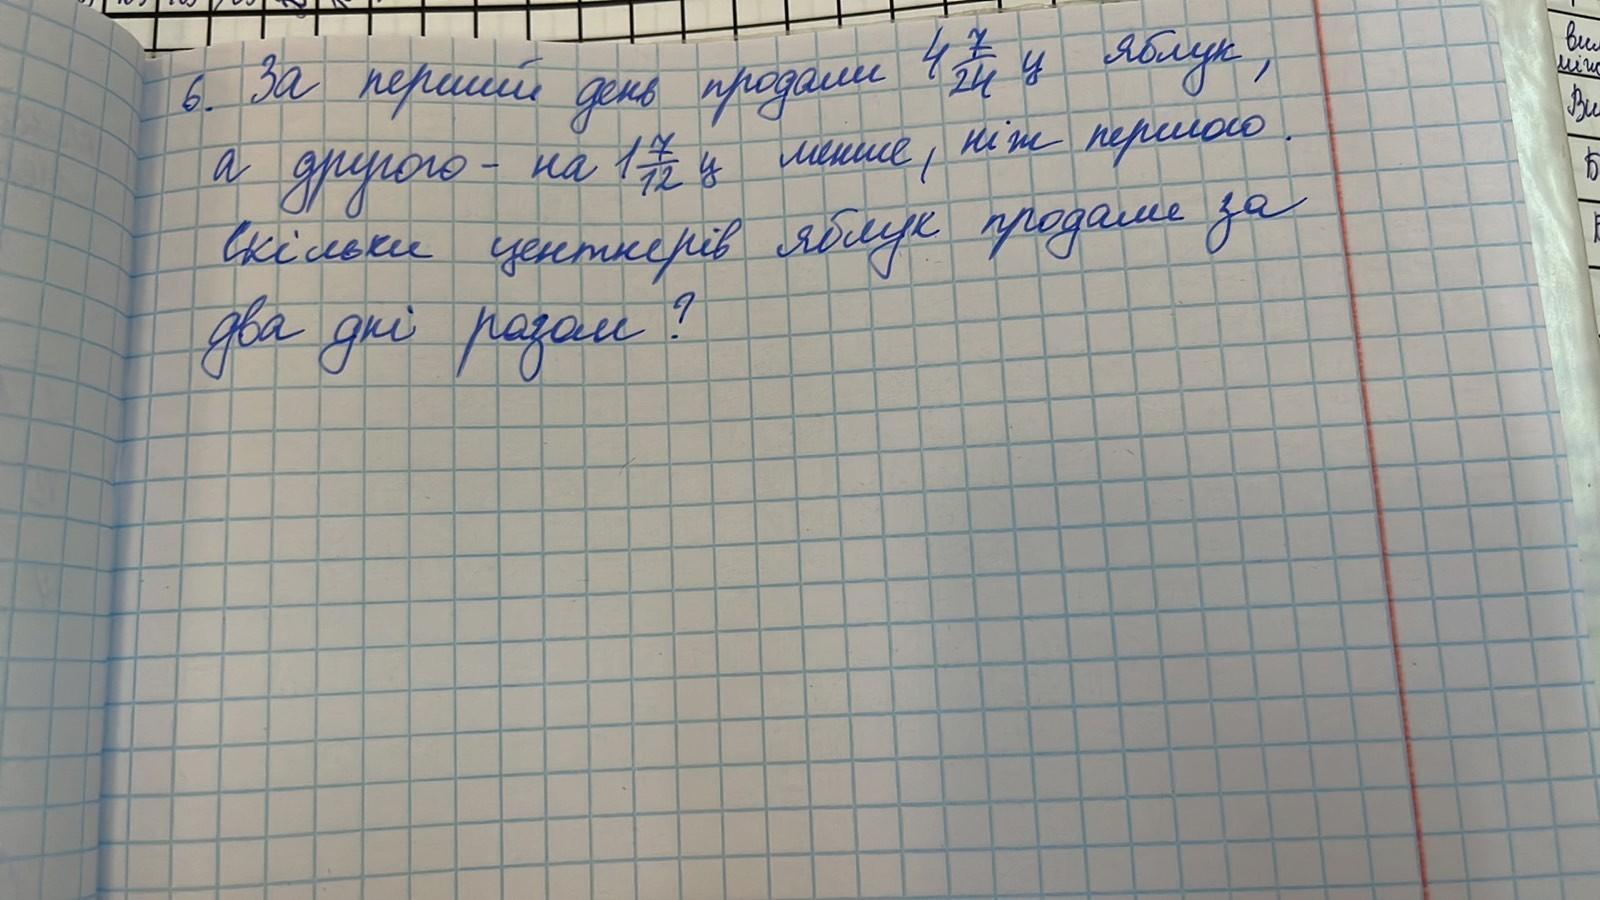 6. За перший день продали 4 7/24 ц яблук,
а другого - на 1 7/12 ц менше, ніж першого.
Скільки центнерів яблук продали за
два дні разом?